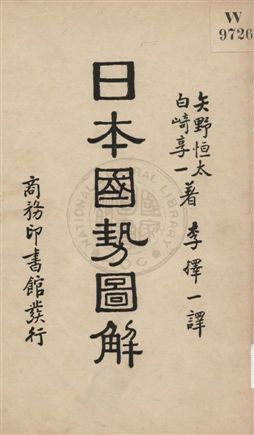 W
9726
矢野恒太
白﨑享一著 李擇一譯
日本國勢圖解
商務印書館發行
NATIONAL LIBRARY